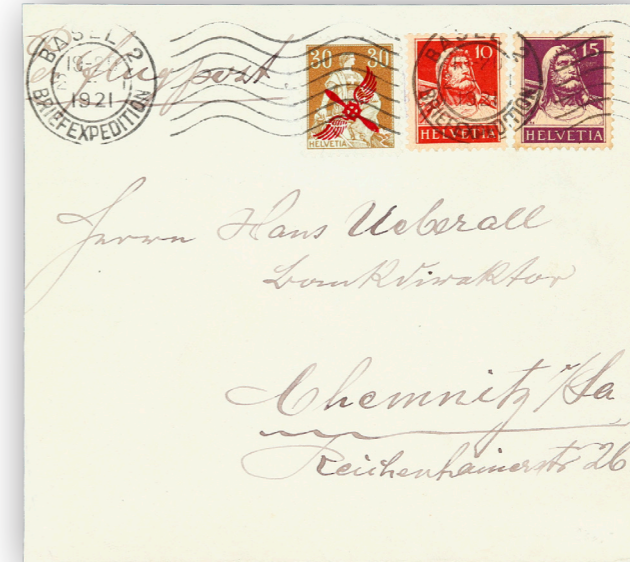 BASEL 2
1921
BRIEFEXPEDITION
p. flugpost
30 30
HELVETIA
10
HELVETIA
15
HELVETIA
BASEL 2
BRIEFEXPEDITION
Herrn Hans Ueberall
Bankdirektor
Chemnitz i/Sa
Reichenhainerstr 26